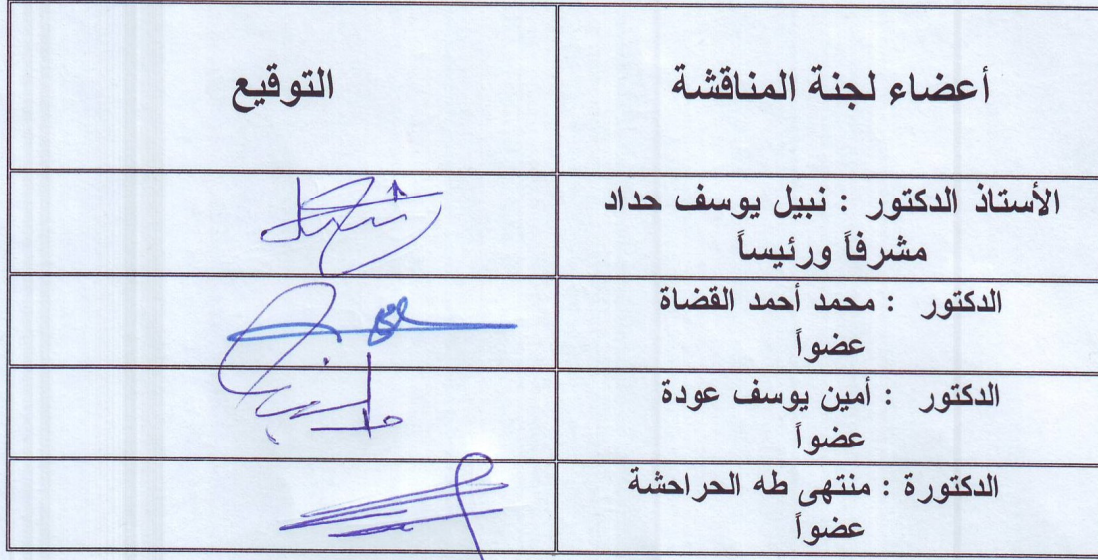 أعضاء لجنة المناقشة
التوقيع
الأستاذ الدكتور : نبيل يوسف حداد
مشرفاً ورئيساً
الدكتور : محمد أحمد القضاة
عضواً
الدكتور : أمين يوسف عودة
عضواً
الدكتورة : منتهى طه الحراحشة
عضواً